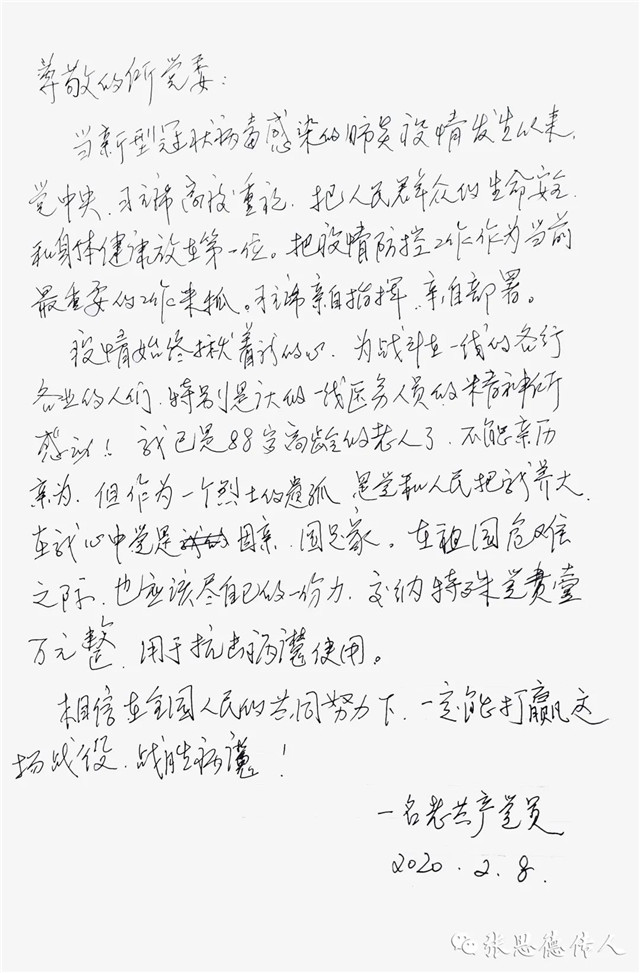 尊敬的所党委：
当新型冠状病毒感染的肺炎疫情发生以来，
党中央、习主席高度重视，把人民群众的生命安全
和身体健康放在第一位。把疫情防控工作作为当前
最重要的工作来抓。习主席亲自指挥，亲自部署。
疫情始终揪着我的心，为战斗在一线的各行
各业的人们，特别是认的一线医务人员的精神所
感动！我已是88岁高龄的老人了，不能亲历
亲为，但作为一个烈士的遗孤，是党和人民把我养大，
在我心中党是母亲、国是家。在祖国危难
之际，也应该尽自己的一份力，交纳特殊党费壹
万元整，用于抗击病魔使用。
相信在全国人民的共同努力下，一定能打赢这
场战役，战胜病魔！
一名老共产党员
2020.2.8.
张思德传人